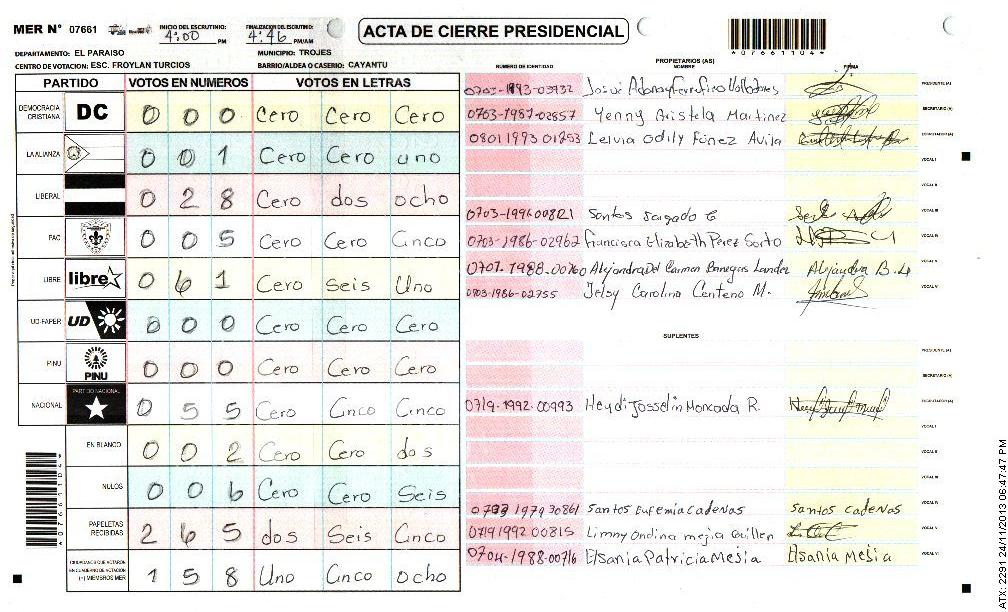 MER N° 07661
INICIO DEL ESCRUTINIO: 4:00 PM
FINALIZACION DEL ESCRUTINIO: 4:46 PM/AM
ACTA DE CIERRE PRESIDENCIAL
*07661104*
DEPARTAMENTO: EL PARAISO
MUNICIPIO: TROJES
CENTRO DE VOTACION: ESC. FROYLAN TURCIOS
BARRIO/ALDEA O CASERIO: CAYANTU
PARTIDO VOTOS EN NUMEROS VOTOS EN LETRAS
DEMOCRACIA CRISTIANA DC 0 0 0 Cero Cero Cero
LA ALIANZA 0 0 1 Cero Cero uno
LIBERAL 0 2 8 Cero dos ocho
PAC 0 0 5 Cero Cero Cinco
LIBRE libre 0 6 1 Cero Seis Uno
UD-FAPER UD 0 0 0 Cero Cero Cero
PINU PINU 0 0 0 Cero Cero Cero
NACIONAL PARTIDO NACIONAL 0 5 5 Cero Cinco Cinco
EN BLANCO 0 0 2 Cero Cero dos
NULOS 0 0 6 Cero Cero Seis
PAPELETAS RECIBIDAS 2 6 5 dos Seis Cinco
CIUDADANOS QUE VOTARON EN CUADERNO DE VOTACION (+) MIEMBROS MER 1 5 8 Uno Cinco ocho
PROPIETARIOS (AS)
NUMERO DE IDENTIDAD NOMBRE FIRMA
0703-1993-03932 PRESIDENTE (A)
0703-1987-02857 Yenny Aristela Martinez SECRETARIO (A)
0801 1993 01853 Lelvia Odily Funez Avila ESCRUTADOR (A)
VOCAL I
VOCAL II
0703-1996-00821 Santos Salgado VOCAL III
0703-1986-02962 Francisca Elizabeth Perez Sarto VOCAL IV
0707-1988-00760 Alejandra Del Carmen Banegas Alejandra B. VOCAL V
0703-1986-02755 Jelsy Carolina Centeno M. VOCAL VI
SUPLENTES
PRESIDENTE (A)
SECRETARIO (A)
0719-1992-00993 Heydi Josselin Moncada R. ESCRUTADOR (A)
VOCAL I
VOCAL II
VOCAL III
1979 30861 Santos Eufemia Cadenas santos cadenas VOCAL IV
0719 1992 00815 Limny Ondina mejia Guillen VOCAL V
0704-1988-00716 Elsania Patricia Mejia Elsania Mejia VOCAL VI
ATX: 2291 24/11/2013 06:47:47 PM